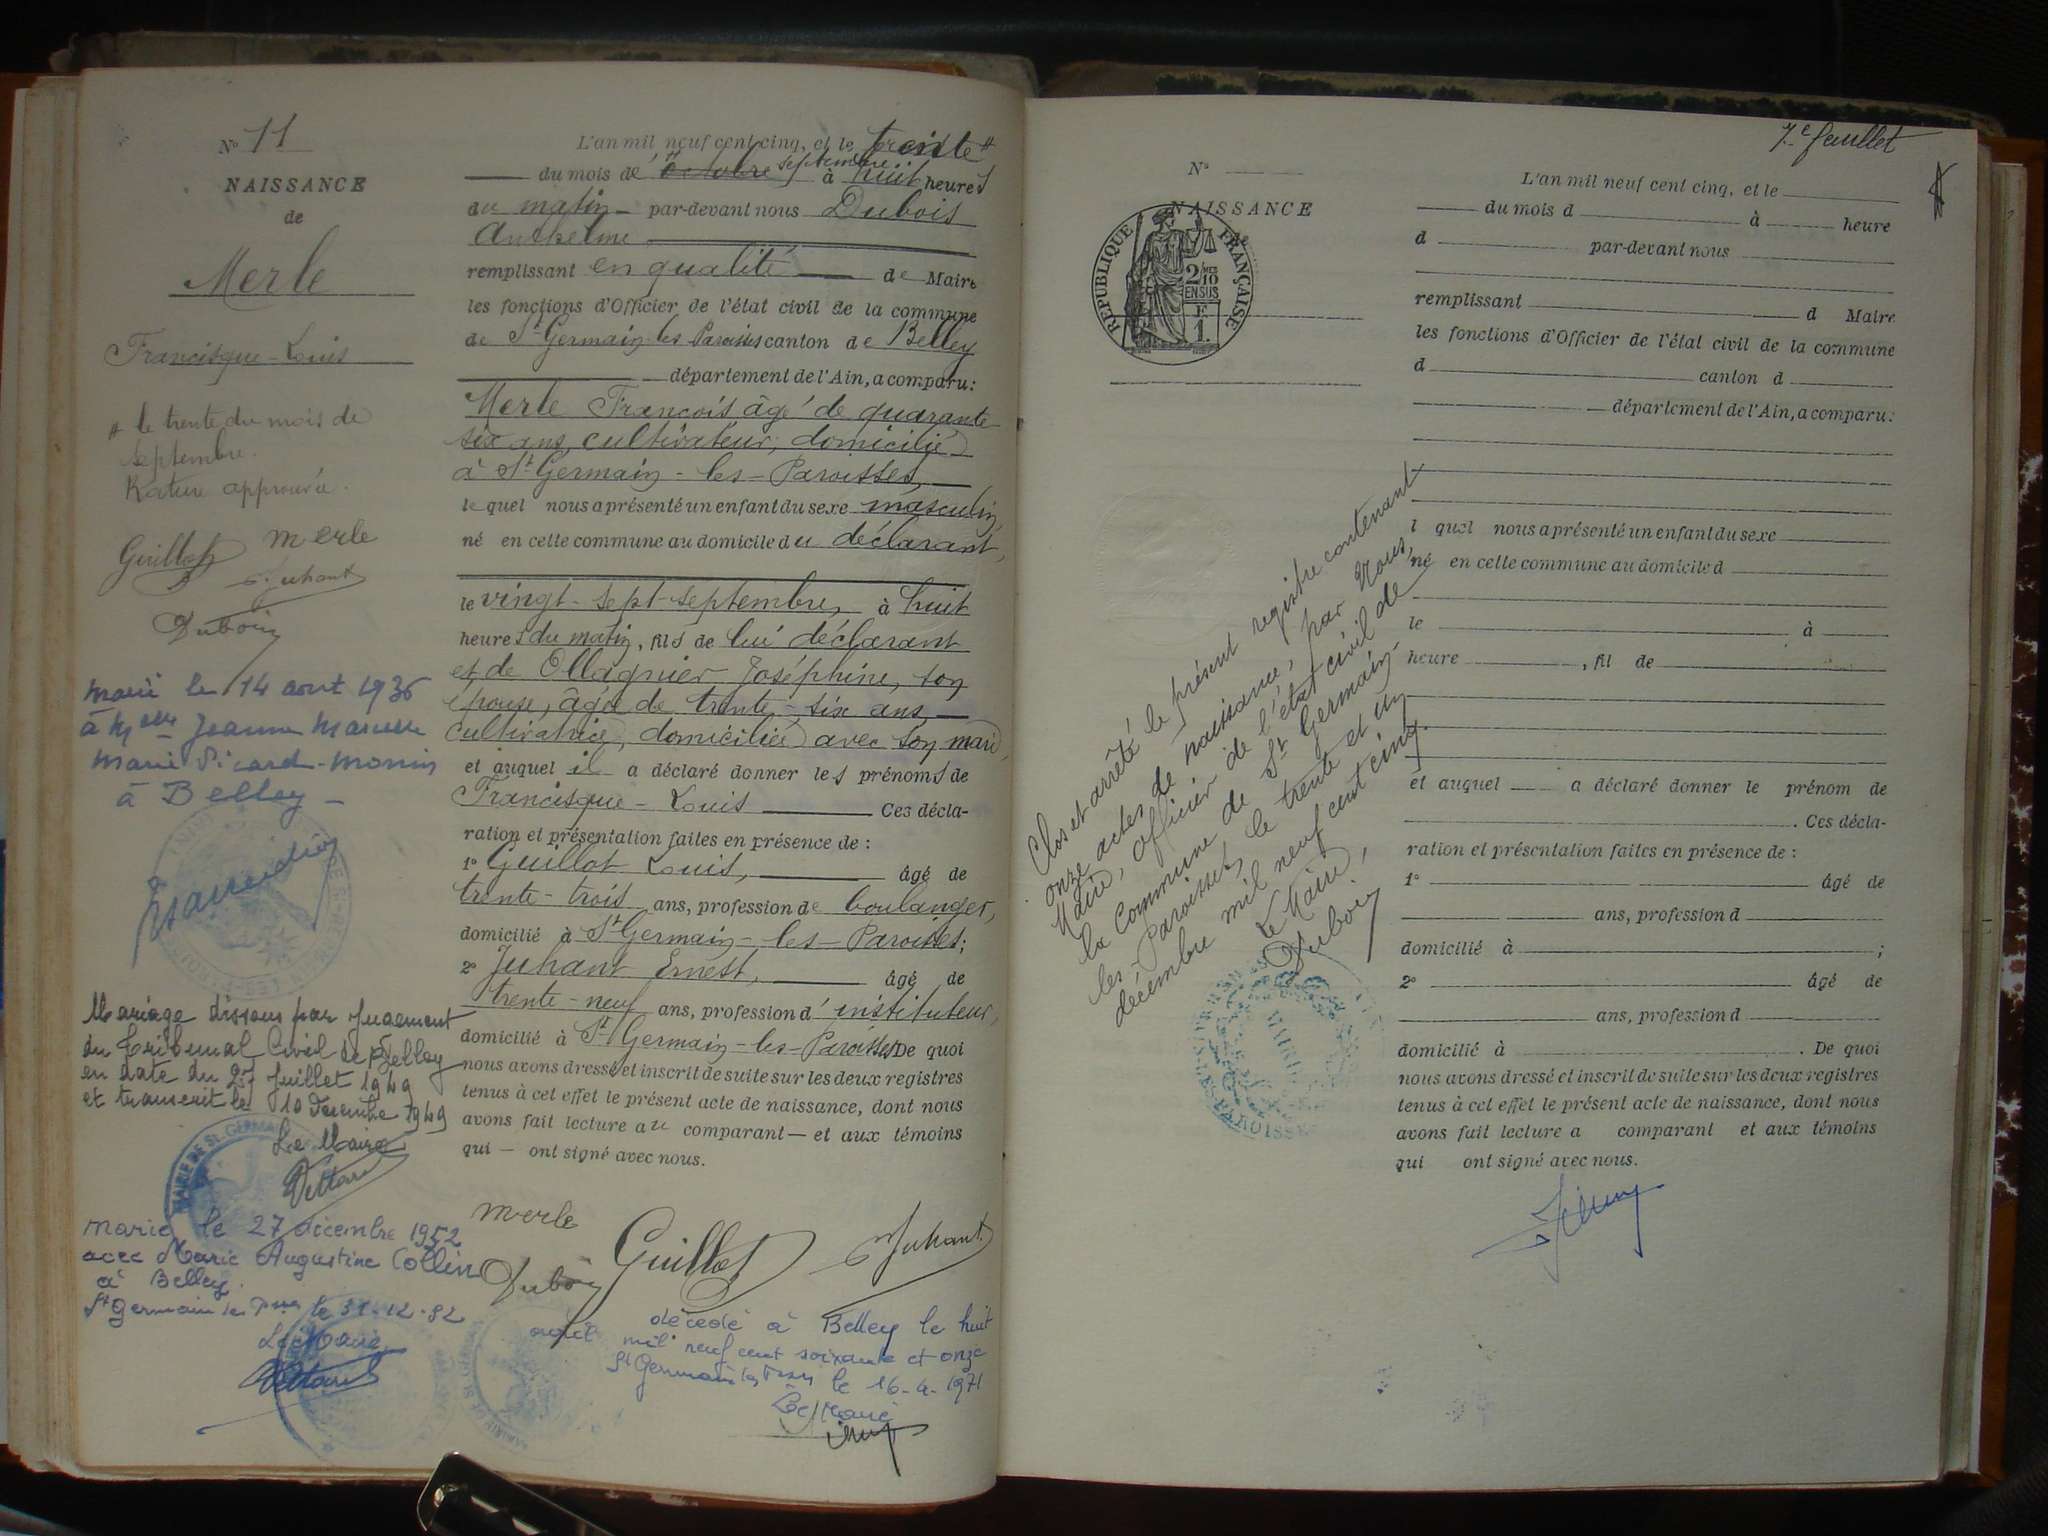 Nº 11
NAISSANCE
de
Merle
Francisque-Louis
# le trente du mois de
septembre.
Rature approuvée.
Guillot Merle
Juhant
Dubois
Marié le 14 aout 1936
à Melle Jeanne Marcelle
Marie Picard-Monin
à Belley -
Mariage dissous par jugement
du Tribunal Civil de Belley
en date du 27 Juillet 1949
et transcrit le 10 Decembre 1949
Le Maire
MAIRIE DE ST GERMAIN
Marié le 27 décembre 1952
avec Marie Augustine Collin
à Belley.
St Germain les Pses le 31-12-52
Le Maire
L'an mil neuf cent cinq, et le trente #
du mois de octobre septembre à huit heures
du matin par-devant nous Dubois
Anthelme
remplissant en qualité de Maire
les fonctions d'Officier de l'état civil de la commune
de St Germain-les-Paroisses canton de Belley
département de l'Ain, a comparu:
Merle François âgé de quarante
six ans, cultivateur, domicilié
à St Germain-les-Paroisses,
lequel nous a présenté un enfant du sexe masculin,
né en cette commune au domicile du déclarant,
le vingt-sept septembre, à huit
heures du matin, fils de lui déclarant
et de Ollagnier Joséphine, son
épouse, âgée de trente-six ans,
cultivatrice, domiciliée avec son mari
et auquel il a déclaré donner les prénoms de
Francisque-Louis Ces décla-
ration et présentation faites en présence de :
1º Guillot Louis, âgé de
trente-trois ans, profession de boulanger,
domicilié à St Germain-les-Paroisses;
2º Juhant Ernest, âgé de
trente-neuf ans, profession d'instituteur,
domicilié à St Germain-les-Paroisses De quoi
nous avons dressé et inscrit de suite sur les deux registres
tenus à cet effet le présent acte de naissance, dont nous
avons fait lecture au comparant — et aux témoins
qui — ont signé avec nous.
Merle
Dubois Guillot Juhant
décédé à Belley le huit
août mil neuf cent soixante et onze
St Germain les Pses le 16-4-1971
Le Maire
7e feuillet
Nº
NAISSANCE
RÉPUBLIQUE FRANÇAISE
2/10
EN SUS
F.
1.
Clos et arrêté le présent registre contenant
onze actes de naissance, par Nous,
Maire, officier de l'état civil de
la commune de St Germain-
les-Paroisses, le trente et un
décembre mil neuf cent cinq.
Le Maire,
Dubois
L'an mil neuf cent cinq, et le
du mois d à heure
d par-devant nous
remplissant d Maire
les fonctions d'Officier de l'état civil de la commune
d canton d
département de l'Ain, a comparu:
l quel nous a présenté un enfant du sexe
né en cette commune au domicile d
le à
heure , fil de
et auquel a déclaré donner le prénom de
. Ces décla-
ration et présentation faites en présence de :
1º âgé de
ans, profession d
domicilié à ;
2º âgé de
ans, profession d
domicilié à . De quoi
nous avons dressé et inscrit de suite sur les deux registres
tenus à cet effet le présent acte de naissance, dont nous
avons fait lecture a comparant et aux témoins
qui ont signé avec nous.